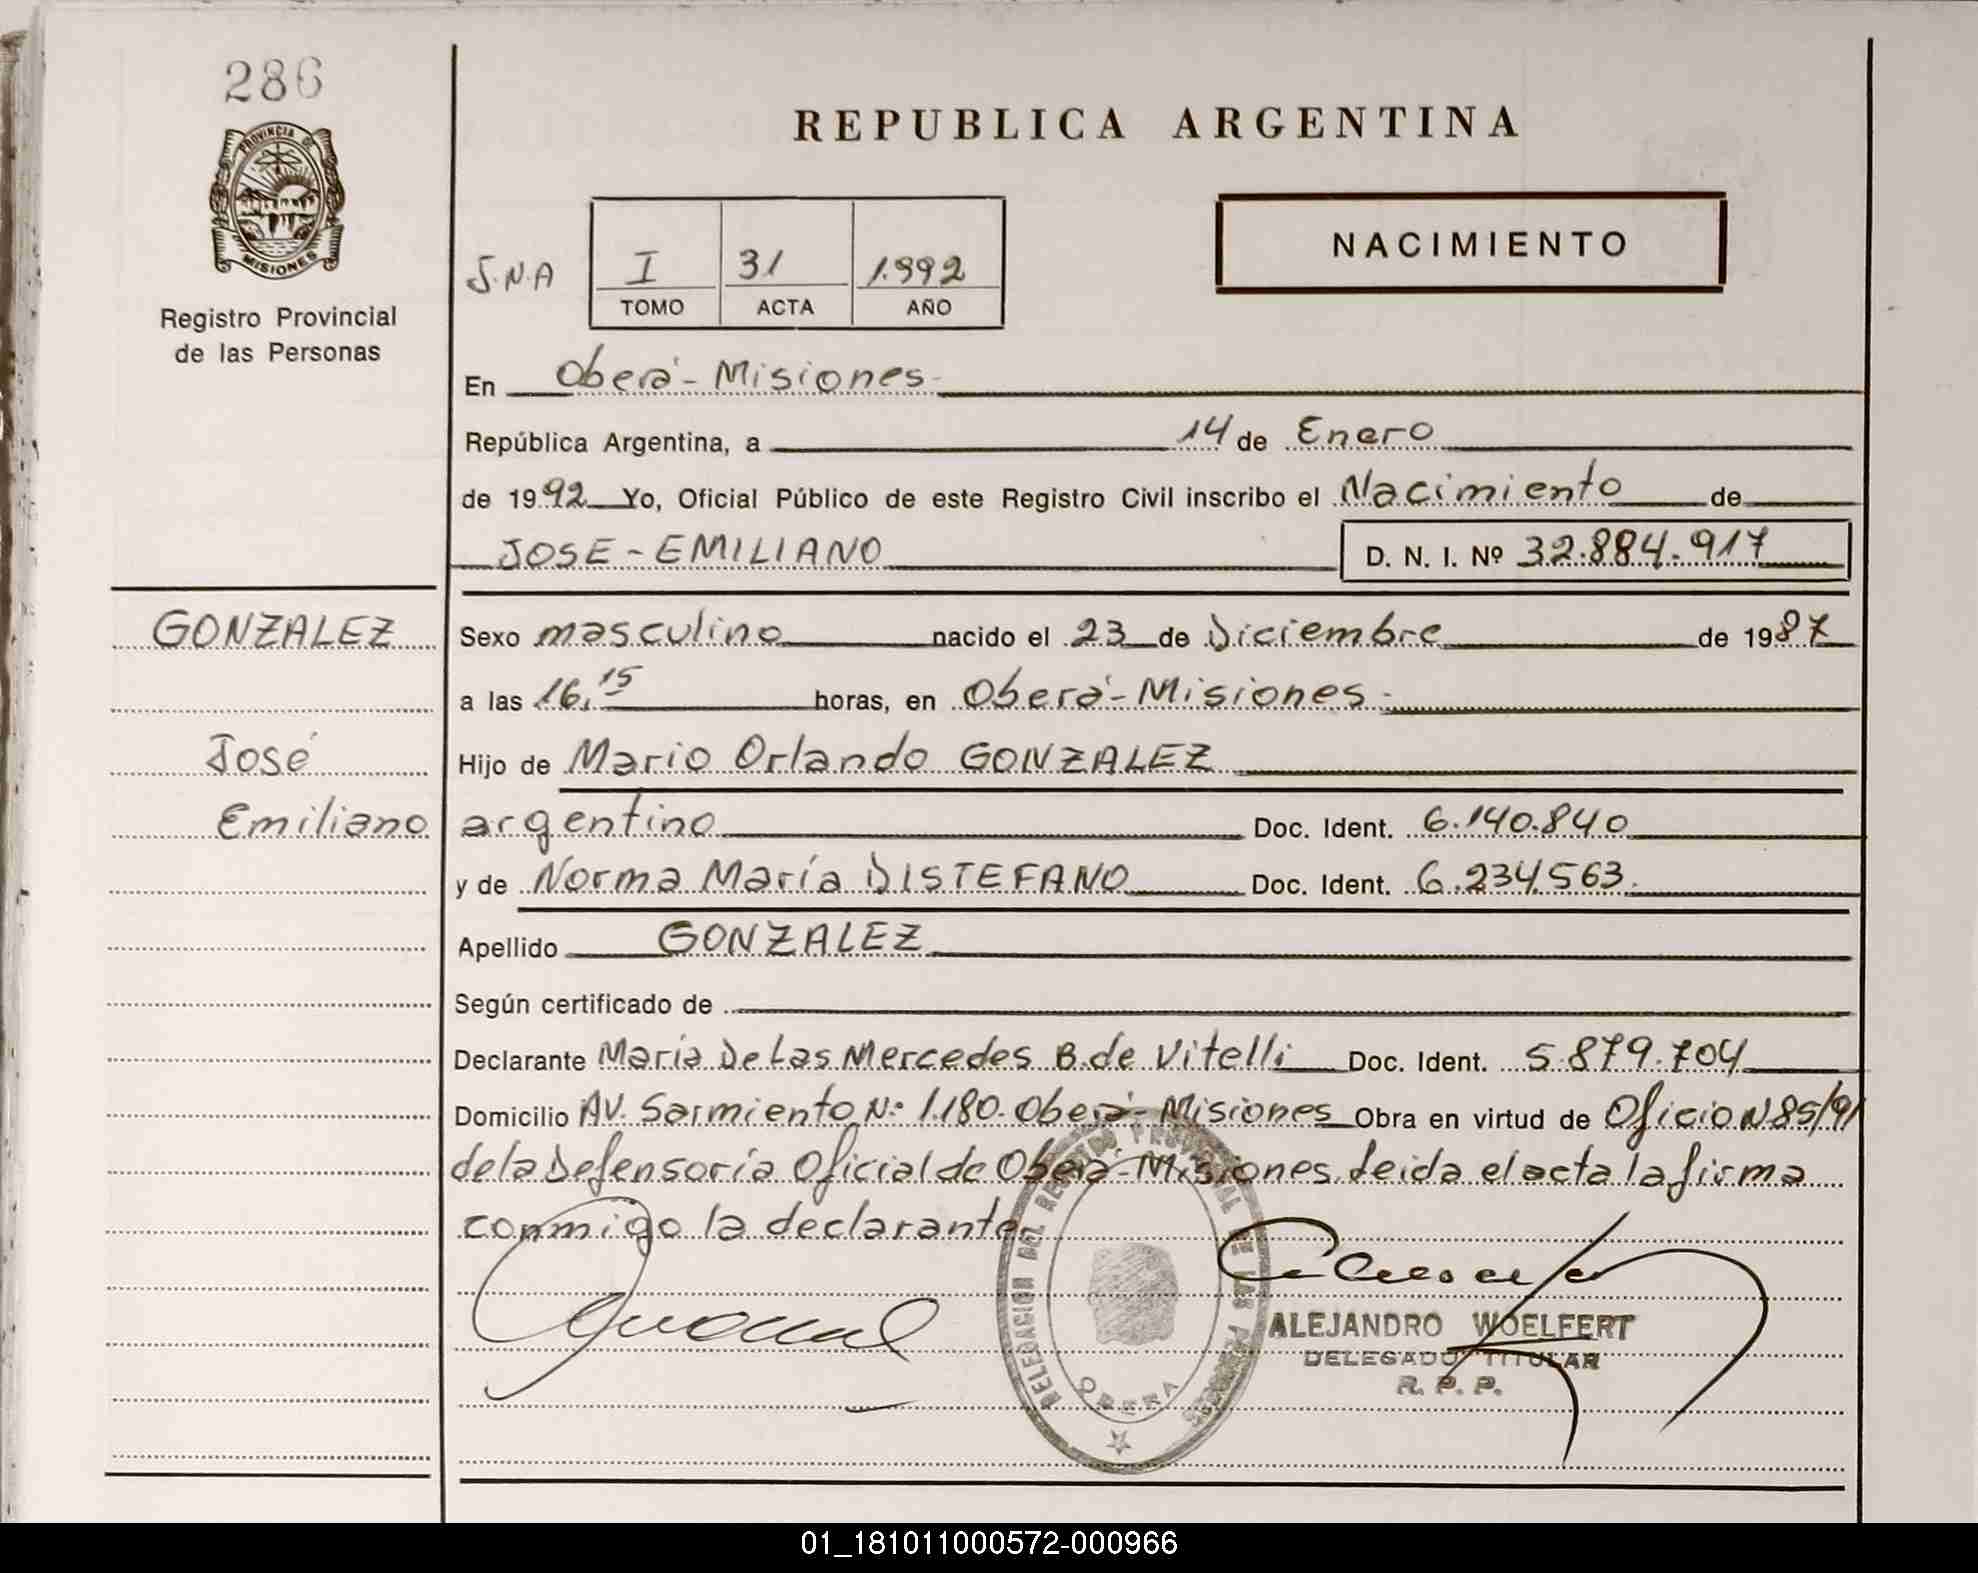 286
PROVINCIA DE
MISIONES
Registro Provincial
de las Personas
REPUBLICA ARGENTINA
NACIMIENTO
J.N.A
I 31 1.992
TOMO ACTA AÑO
En Oberá - Misiones -
República Argentina, a 14 de Enero
de 1992 Yo, Oficial Público de este Registro Civil inscribo el Nacimiento de
JOSE - EMILIANO D. N. I. Nº 32.884.917
GONZALEZ
José
Emiliano
Sexo masculino nacido el 23 de Diciembre de 1987
a las 16,15 horas, en Oberá - Misiones -
Hijo de Mario Orlando GONZALEZ
argentino Doc. Ident. 6.140.840
y de Norma María DISTEFANO Doc. Ident. 6.234.563.
Apellido GONZALEZ
Según certificado de
Declarante María De Las Mercedes B. de Vitelli Doc. Ident. 5.879.704
Domicilio AV. Sarmiento Nº 1.180. Oberá - Misiones Obra en virtud de Oficio N 85/91
de la Defensoría Oficial de Oberá - Misiones. Leida el acta la firma
conmigo la declarante
DELEGACION DEL REGISTRO PROVINCIAL DE LAS PERSONAS
OBERA
ALEJANDRO WOELFERT
DELEGADO TITULAR
R. P. P.
01_181011000572-000966